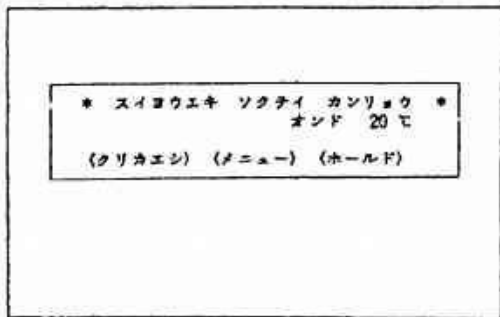 * スイヨウエキ ソクテイ カンリョウ *
オンド 20 ℃
(クリカエシ) (メニュー) (ホールド)